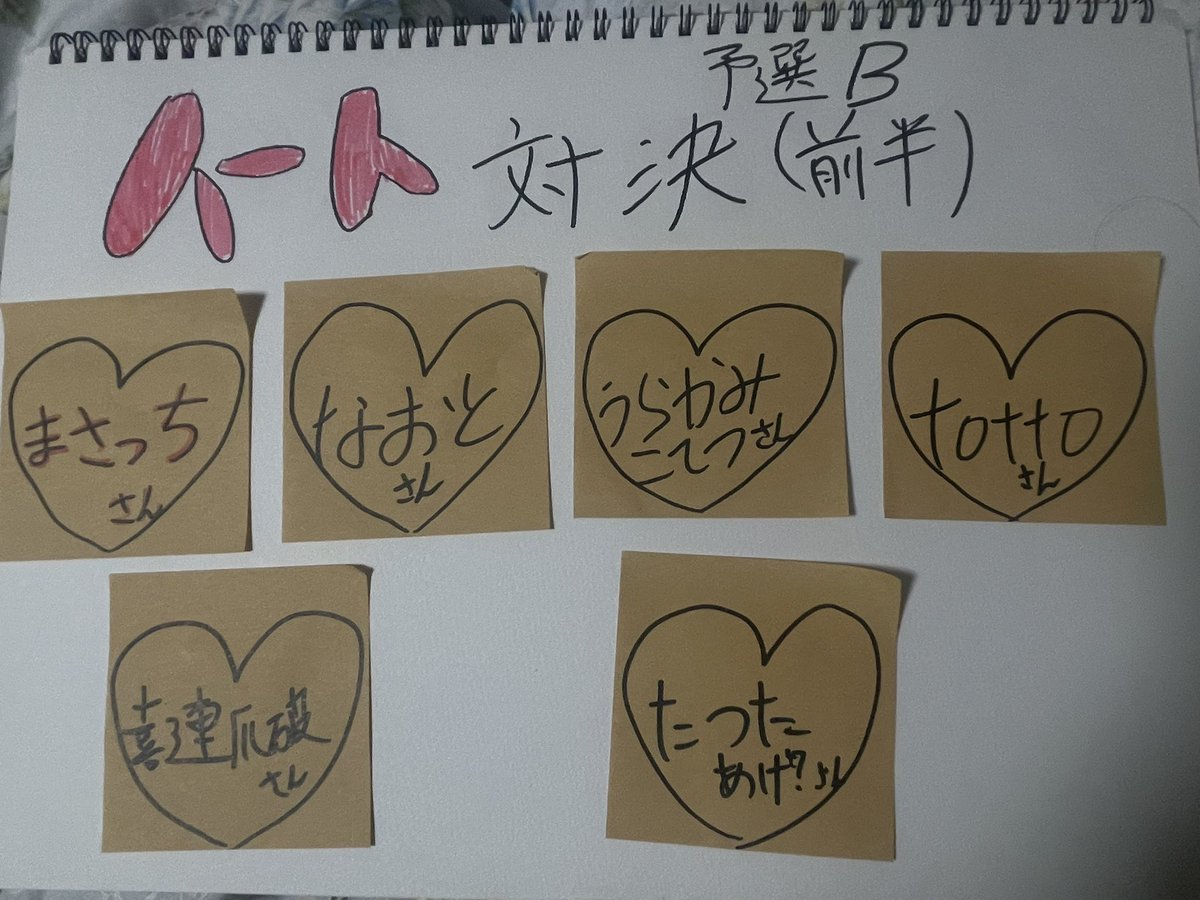 予選B
ハート対決(前半)
まさっち
さん
なおと
さん
うらかみ
こてつさん
totto
さん
喜連瓜破
さん
たつた
あげ?さん